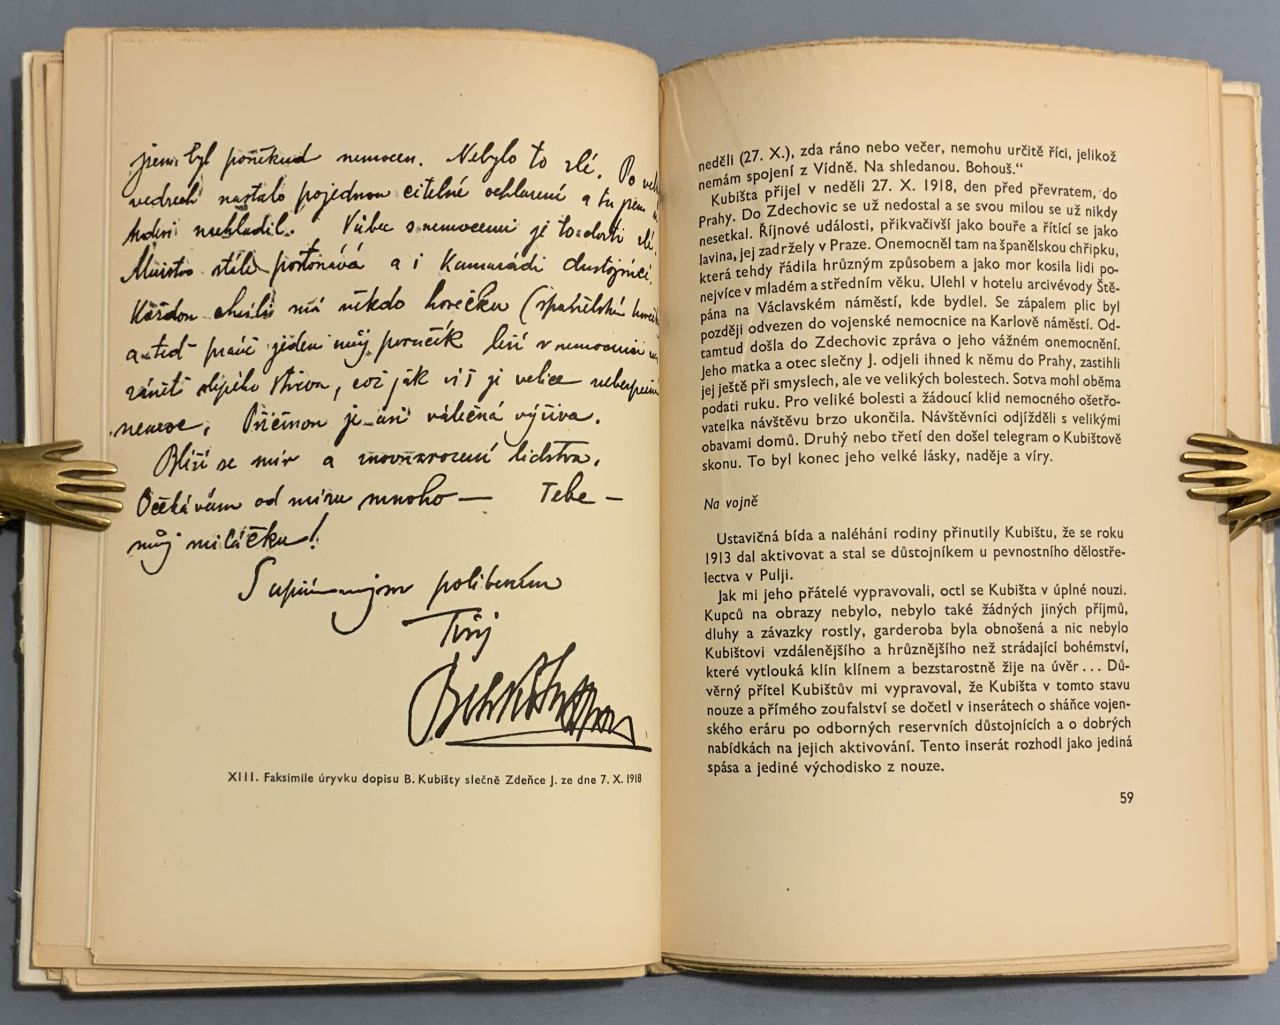 jsem byl poněkud nemocen. Nebylo to zlé. Po
vedrech nastalo pojednou citelné ochlazení a tu jsem
nachladil. Vůbec s nemocemi je to dosti zlé.
Mužstvo stále postonává a i kamarádi důstojníci.
Každou chvíli má někdo horečku (španělskou
a teď právě jeden můj poručík leží v nemocnici
zánět slepého střeva, což jak víš je velice nebezpečná
nemoc. Příčinou je asi válečná výživa.
Blíží se mír a znovuzrození lidstva.
Očekávám od míru mnoho — Tebe —
můj miláčku!
S upřímným políbením
Tvůj
XIII. Faksimile úryvku dopisu B. Kubišty slečně Zdeňce J. ze dne 7. X. 1918
neděli (27. X.), zda ráno nebo večer, nemohu určitě říci, jelikož
nemám spojení z Vídně. Na shledanou. Bohouš."
Kubišta přijel v neděli 27. X. 1918, den před převratem, do
Prahy. Do Zdechovic se už nedostal a se svou milou se už nikdy
nesetkal. Říjnové události, přikvačivší jako bouře a řítící se jako
lavina, jej zadržely v Praze. Onemocněl tam na španělskou chřipku,
která tehdy řádila hrůzným způsobem a jako mor kosila lidi po-
nejvíce v mladém a středním věku. Ulehl v hotelu arcivévody Ště-
pána na Václavském náměstí, kde bydlel. Se zápalem plic byl
později odvezen do vojenské nemocnice na Karlově náměstí. Od-
tamtud došla do Zdechovic zpráva o jeho vážném onemocnění.
Jeho matka a otec slečny J. odjeli ihned k němu do Prahy, zastihli
jej ještě při smyslech, ale ve velikých bolestech. Sotva mohl oběma
podati ruku. Pro veliké bolesti a žádoucí klid nemocného ošetřo-
vatelka návštěvu brzo ukončila. Návštěvníci odjížděli s velikými
obavami domů. Druhý nebo třetí den došel telegram o Kubištově
skonu. To byl konec jeho velké lásky, naděje a víry.
Na vojně
Ustavičná bída a naléhání rodiny přinutily Kubištu, že se roku
1913 dal aktivovat a stal se důstojníkem u pevnostního dělostře-
lectva v Pulji.
Jak mi jeho přátelé vypravovali, octl se Kubišta v úplné nouzi.
Kupců na obrazy nebylo, nebylo také žádných jiných příjmů,
dluhy a závazky rostly, garderoba byla obnošená a nic nebylo
Kubištovi vzdálenějšího a hrůznějšího než strádající bohémství,
které vytlouká klín klínem a bezstarostně žije na úvěr... Dů-
věrný přítel Kubištův mi vypravoval, že Kubišta v tomto stavu
nouze a přímého zoufalství se dočetl v inserátech o sháňce vojen-
ského eráru po odborných reservních důstojnících a o dobrých
nabídkách na jejich aktivování. Tento inserát rozhodl jako jediná
spása a jediné východisko z nouze.
59